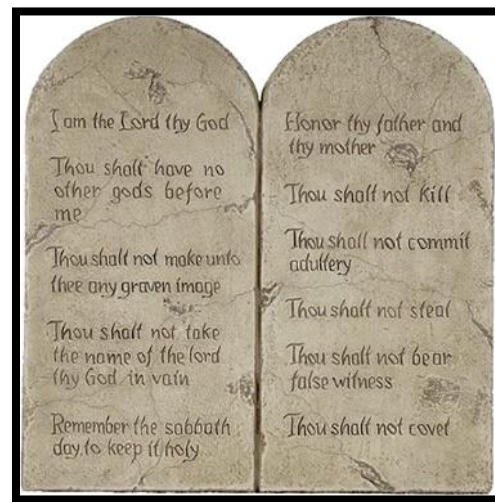 I am the Lord thy God
Thou shalt have no
other gods before
me
Thou shalt not make unto
thee any graven image
Thou shalt not take
the name of the lord
thy God in vain
Remember the sabbath
day, to keep it holy
Honor thy father and
thy mother
Thou shall not kill
Thou shall not commit
adultery
Thou shall not steal
Thou shall not bear
false witness
Thou shall not covet